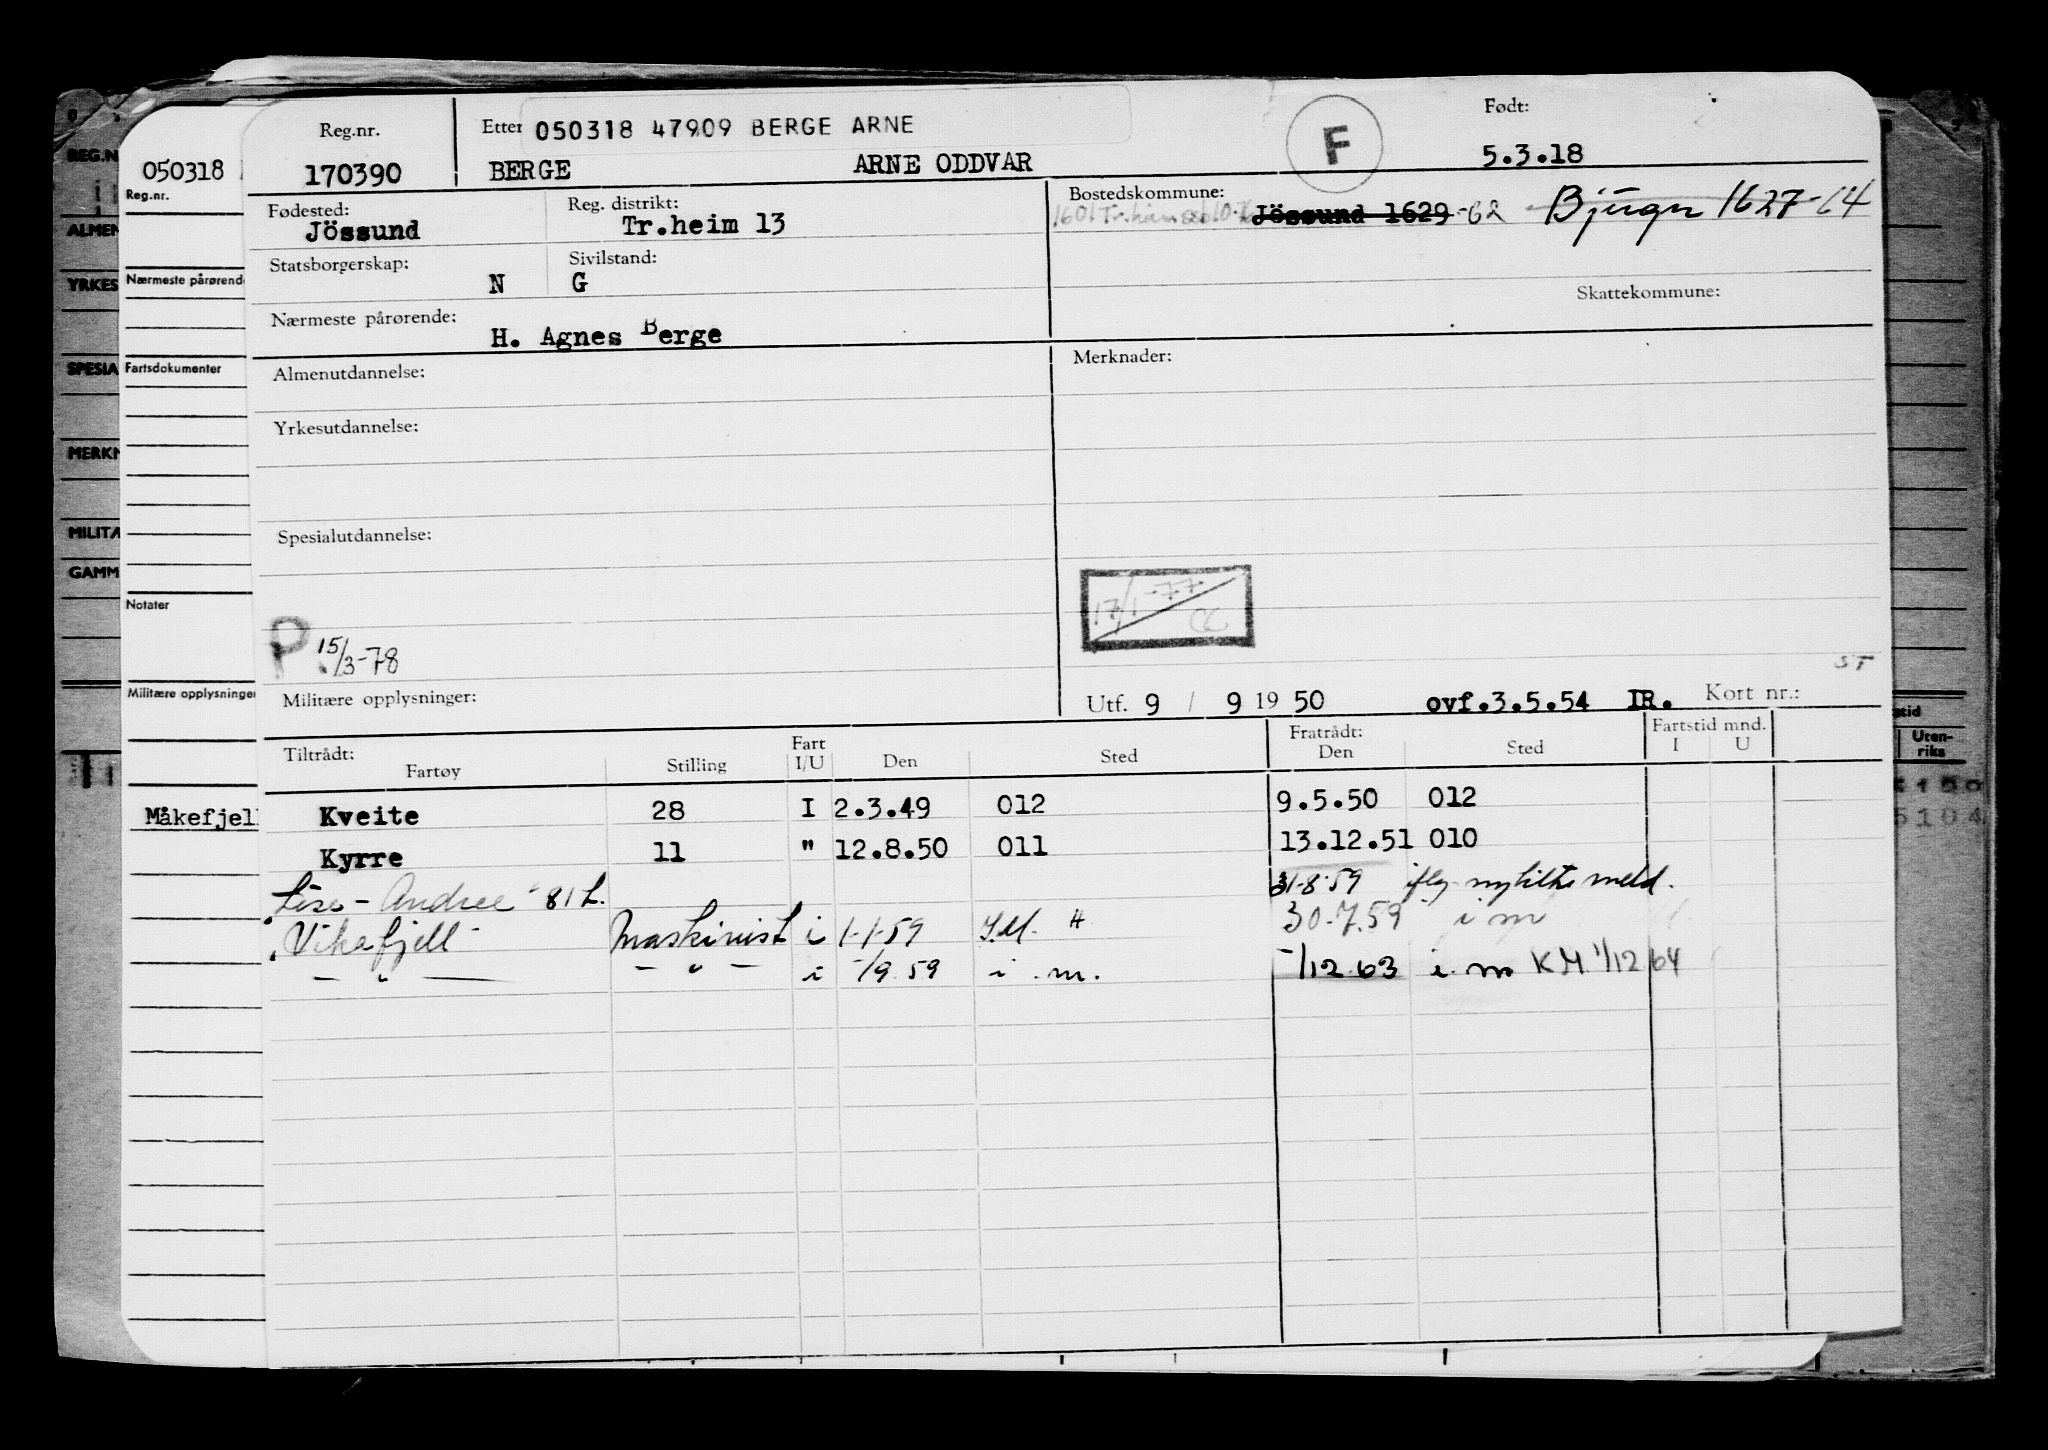 Reg.nr. Etter 050318 47909 BERGE ARNE F Født:
170390 BERGE ARNE ODDVAR 5.3.18
050318
Reg.nr.
Fødested: Reg. distrikt: Bostedskommune:
Jössund Tr.heim 13 Jössund 1629 -62 Bjugn 1627-64
Statsborgerskap: N Sivilstand: G
Skattekommune:
Nærmeste pårørende: H. Agnes Berge
Almenutdannelse: Merknader:
Yrkesutdannelse:
Spesialutdannelse:
17/1-77
P. 15/3-78
ST
Militære opplysninger: Utf. 9 / 9 19 50 ovf.3.5.54 IR. Kort nr.:
Tiltrådt: Fartøy Stilling Fart I/U Den Sted Fratrådt: Den Sted Fartstid mnd. I U
Kveite 28 I 2.3.49 012 9.5.50 012
Kyrre 11 " 12.8.50 011 13.12.51 010
Lise-Andree 81 L. 31-8-59 iflg. nytiltr meld.
Vikafjell Maskinist i 1-1-59 30-7.59 i m
— " — — " — i -/9.59 i .m. -/12.63 i.m KM 1/12 64
REG.N
ALMEN
YRKES
SPESIA
MERKN
MILITÆ
GAMM
Nærmeste pårørende
Fartsdokumenter
Notater
Militære opplysninger
Måkefjell
Uten-
riks